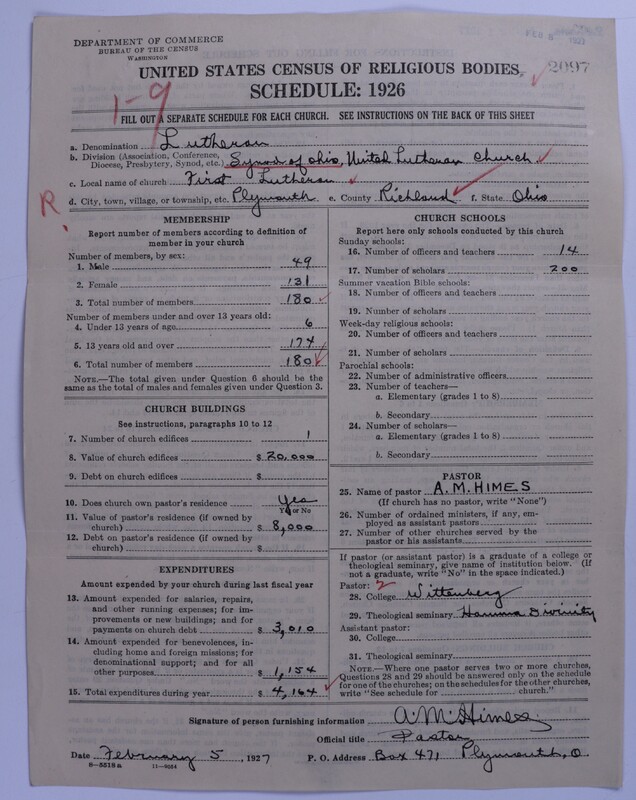 DEPARTMENT OF COMMERCE
BUREAU OF THE CENSUS
WASHINGTON
2097
UNITED STATES CENSUS OF RELIGIOUS BODIES,
SCHEDULE: 1926
1-9
FILL OUT A SEPARATE SCHEDULE FOR EACH CHURCH. SEE INSTRUCTIONS ON THE BACK OF THIS SHEET
a. Denomination Lutheran
b. Division (Association, Conference, Diocese, Presbytery, Synod, etc.) Synod of Ohio, United Lutheran Church
c. Local name of church First Lutheran
R.
d. City, town, village, or township, etc. Plymouth e. County Richland f. State Ohio
MEMBERSHIP
Report number of members according to definition of
member in your church
Number of members, by sex:
1. Male 49
2. Female 131
3. Total number of members 180
Number of members under and over 13 years old:
4. Under 13 years of age 6
5. 13 years old and over 174
6. Total number of members 180
NOTE.—The total given under Question 6 should be the
same as the total of males and females given under Question 3.
CHURCH BUILDINGS
See instructions, paragraphs 10 to 12
7. Number of church edifices 1
8. Value of church edifices $ 20,000
9. Debt on church edifices $
10. Does church own pastor's residence Yes
Yes or No
11. Value of pastor's residence (if owned by
church) $ 8,000
12. Debt on pastor's residence (if owned by
church) $
EXPENDITURES
Amount expended by your church during last fiscal year
13. Amount expended for salaries, repairs,
and other running expenses; for im-
provements or new buildings; and for
payments on church debt $ 3,010
14. Amount expended for benevolences, in-
cluding home and foreign missions; for
denominational support; and for all
other purposes $ 1,154
15. Total expenditures during year $ 4,164
CHURCH SCHOOLS
Report here only schools conducted by this church
Sunday schools:
16. Number of officers and teachers 14
17. Number of scholars 200
Summer vacation Bible schools:
18. Number of officers and teachers
19. Number of scholars
Week-day religious schools:
20. Number of officers and teachers
21. Number of scholars
Parochial schools:
22. Number of administrative officers
23. Number of teachers—
a. Elementary (grades 1 to 8)
b. Secondary
24. Number of scholars—
a. Elementary (grades 1 to 8)
b. Secondary
PASTOR
25. Name of pastor A. M. HIMES
(If church has no pastor, write "None")
26. Number of ordained ministers, if any, em-
ployed as assistant pastors
27. Number of other churches served by the
pastor or his assistants
If pastor (or assistant pastor) is a graduate of a college or
theological seminary, give name of institution below. (If
not a graduate, write "No" in the space indicated.)
Pastor: 2
28. College Wittenberg
29. Theological seminary Hamma Divinity
Assistant pastor:
30. College
31. Theological seminary
NOTE.—Where one pastor serves two or more churches,
Questions 28 and 29 should be answered only on the schedule
for one of the churches; on the schedules for the other churches,
write "See schedule for church."
Signature of person furnishing information A. M. Himes
Official title Pastor
Date February 5, 1927 P. O. Address Box 471 Plymouth, O
8—5518a 11—9684